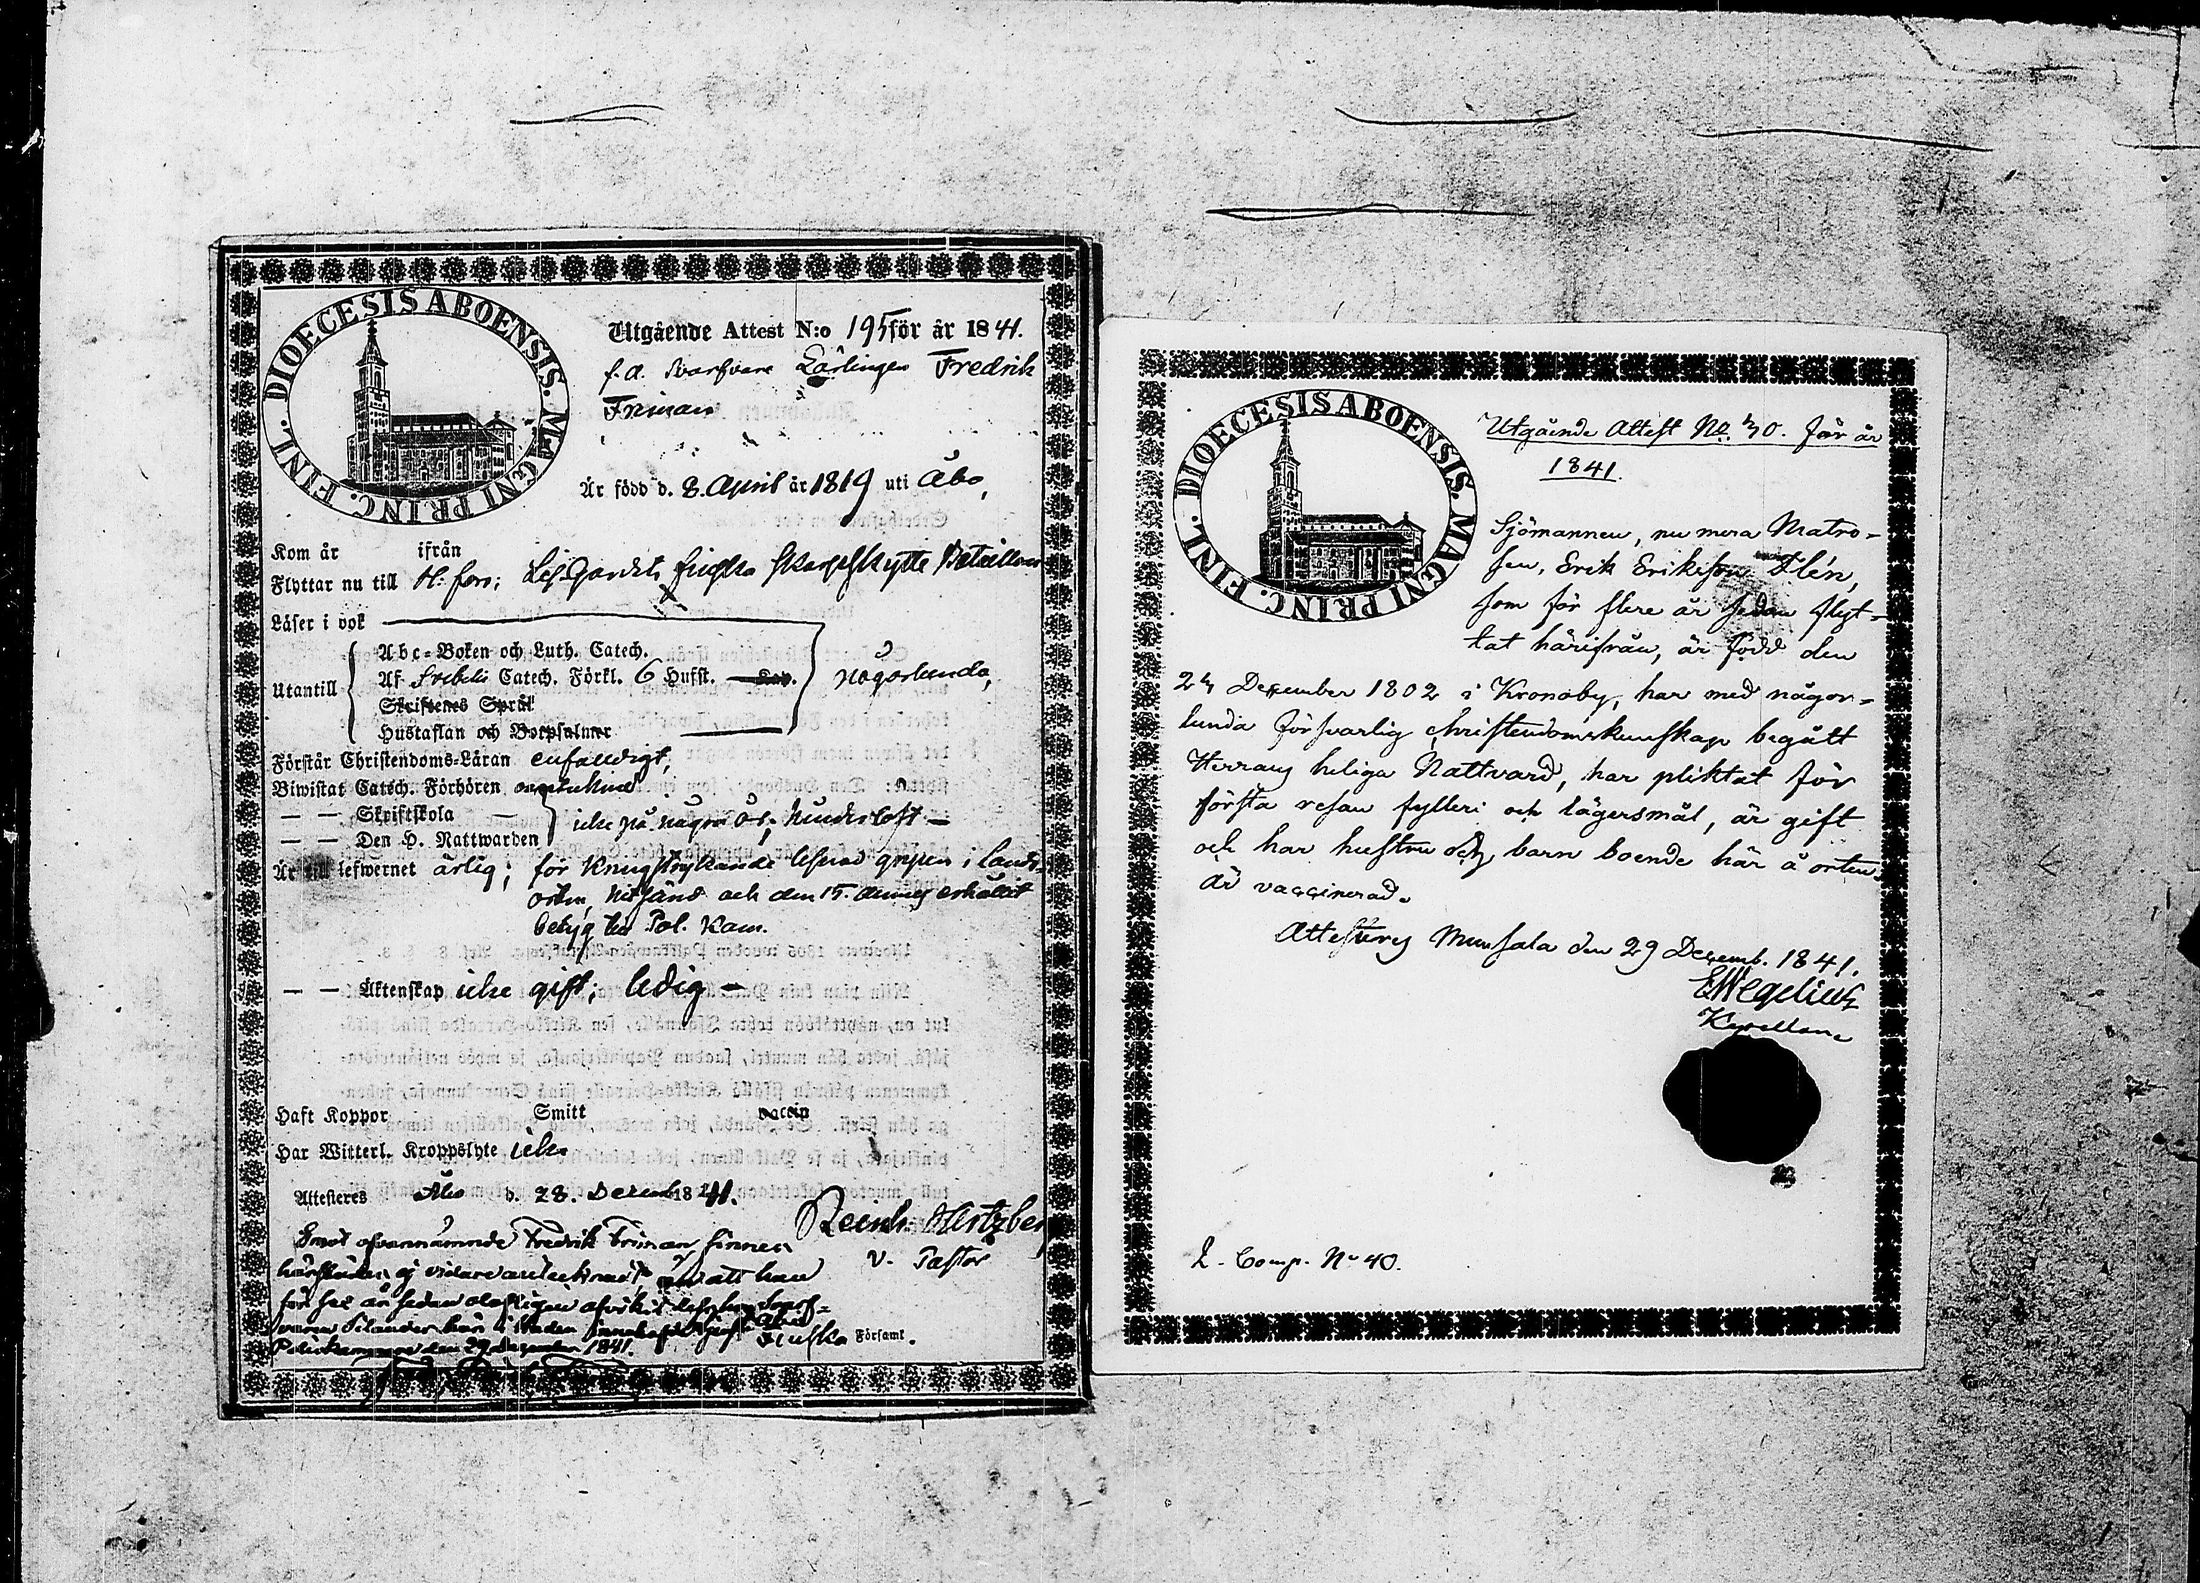 DIOECESIS ABOENSIS. MAGNI PRINC. FINL.
Utgående Attest N:o 195 för år 1841.
f. d. Svarfvare Lärlingen Fredrik
Friman
Är född d. 8. April år 1819 uti Åbo,
Kom år ifrån
Flyttar nu till H:fors; Lif Gardets Finska Skarpskytte Bataillon
Läser i bok
Abc-Boken och Luth. Catech.
Utantill Af Svebelii Catech. Förkl. 6 Hufst. Cap. någorlunda,
Skriftenes Språk
Hustaflan och Botpsalmer
Förstår Christendoms-Läran enfaldigt,
Biwistat Catech. Förhören
— — Skriftskola —
— — Den H. Nattwarden icke på några år;
Är till lefwernet ärlig; för kringstrykande lefnad gripen i lands-
orten, hitsänd och den 15. dennes erhållit
betyg Pol. Kam.
— — Äktenskap icke gift; ledig —
Haft Koppor Smitt vaccin
Har Witterl. Kroppslyte icke
Attesteres Åbo d. 28. Decemb. 1841.
Reinh. Hertzberg
V. Pastor
Emot ofvannämnde Fredrik Friman finnes
ej vidare antecknadt, än att han
för år sedan
här i staden
Åbo
Finska Församl.
Poliskammaren den 29 December 1841.
DIOECESIS ABOENSIS. MAGNI PRINC. FINL.
Utgående Attest No 30. för år
1841.
Sjömannen, nu mera Matro-
sen, Erik Eriksson Flén,
som för flere år sedan flyt-
tat härifrån, är född den
27 December 1802 i Kronoby, har med någor-
lunda försvarlig christendomskunskap begått
Herrans heliga Nattvard, har pliktat för
första resan fylleri och lägersmål, är gift
och har hustru och barn boende här å orten.
är vaccinerad.
Attesteras Munsala den 29 Decemb. 1841.
E Wegelius
Kapellan
2. Comp. No 40.